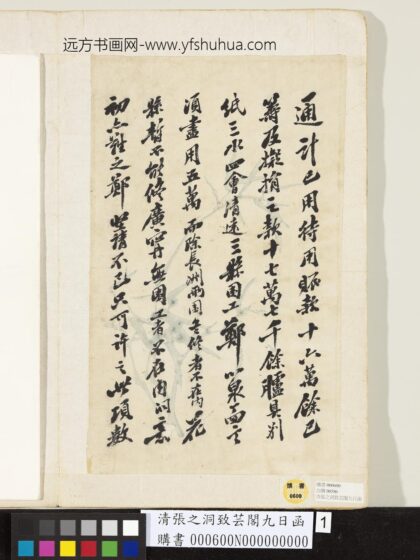 远方书画网-www.yfshuhua.com
通计已用待用赈款十六萬餘已
籌及擬捐之款十七萬七千餘臚具別
紙三水四會清遠三縣囤工鄭
須盡用五萬而除長洲兩圍不
縣暫不能修廣寧無圍工者不在內
初亦難之鄭堅請不已只可許之此項數
購書
0600
清張之洞致芸閣九日函
購書 000600N000000000
1